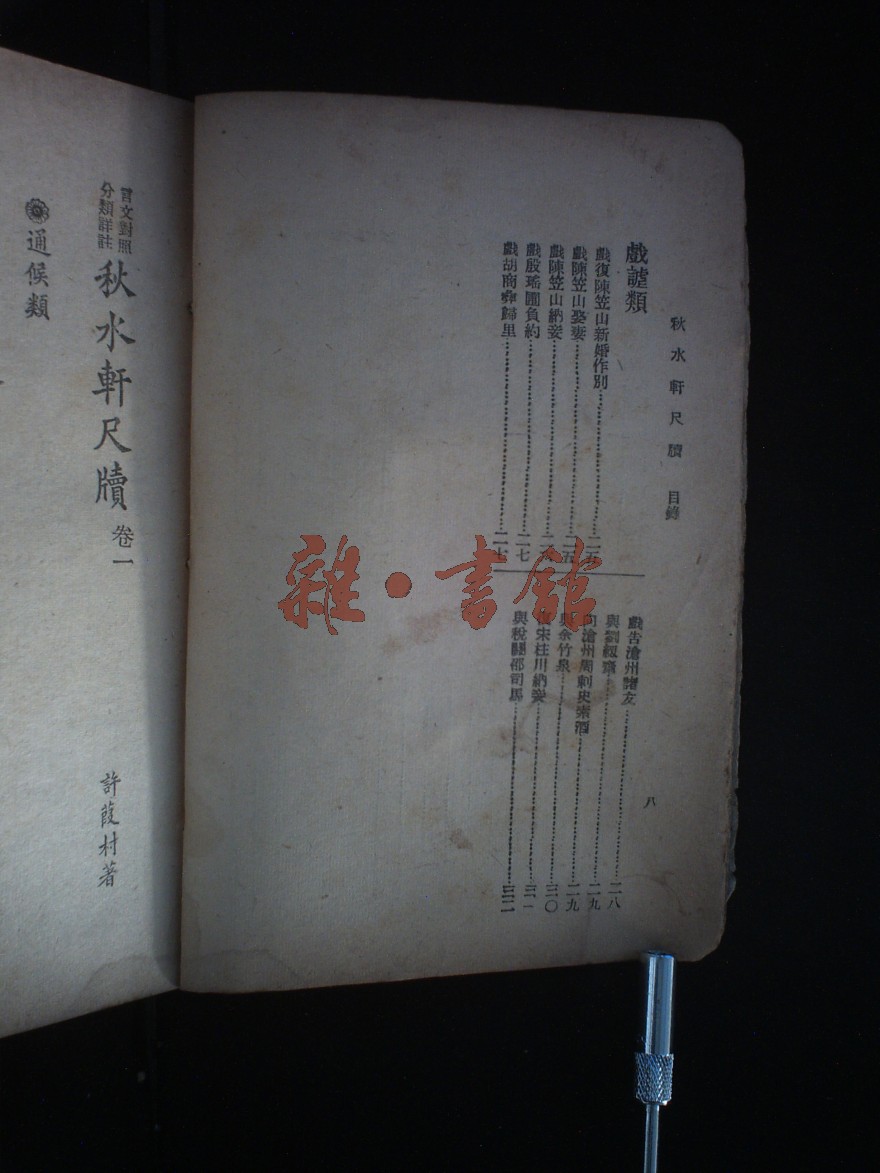 秋水軒尺牘 目錄
八
戲謔類
戲復陳笠山新婚作別 二五
戲陳笠山娶妻 二五
戲陳笠山納妾 二六
戲殷瑤圃負約 二七
戲胡商彝歸里 二七
戲告滄州諸友 二八
與劉綴齋 二九
向滄州周刺史索酒 二九
與余竹泉 三〇
宋柱川納妾 三一
與稅關邵司馬 三二
言文對照
分類詳註
秋水軒尺牘 卷一
許葭村著
通候類
雜·書館